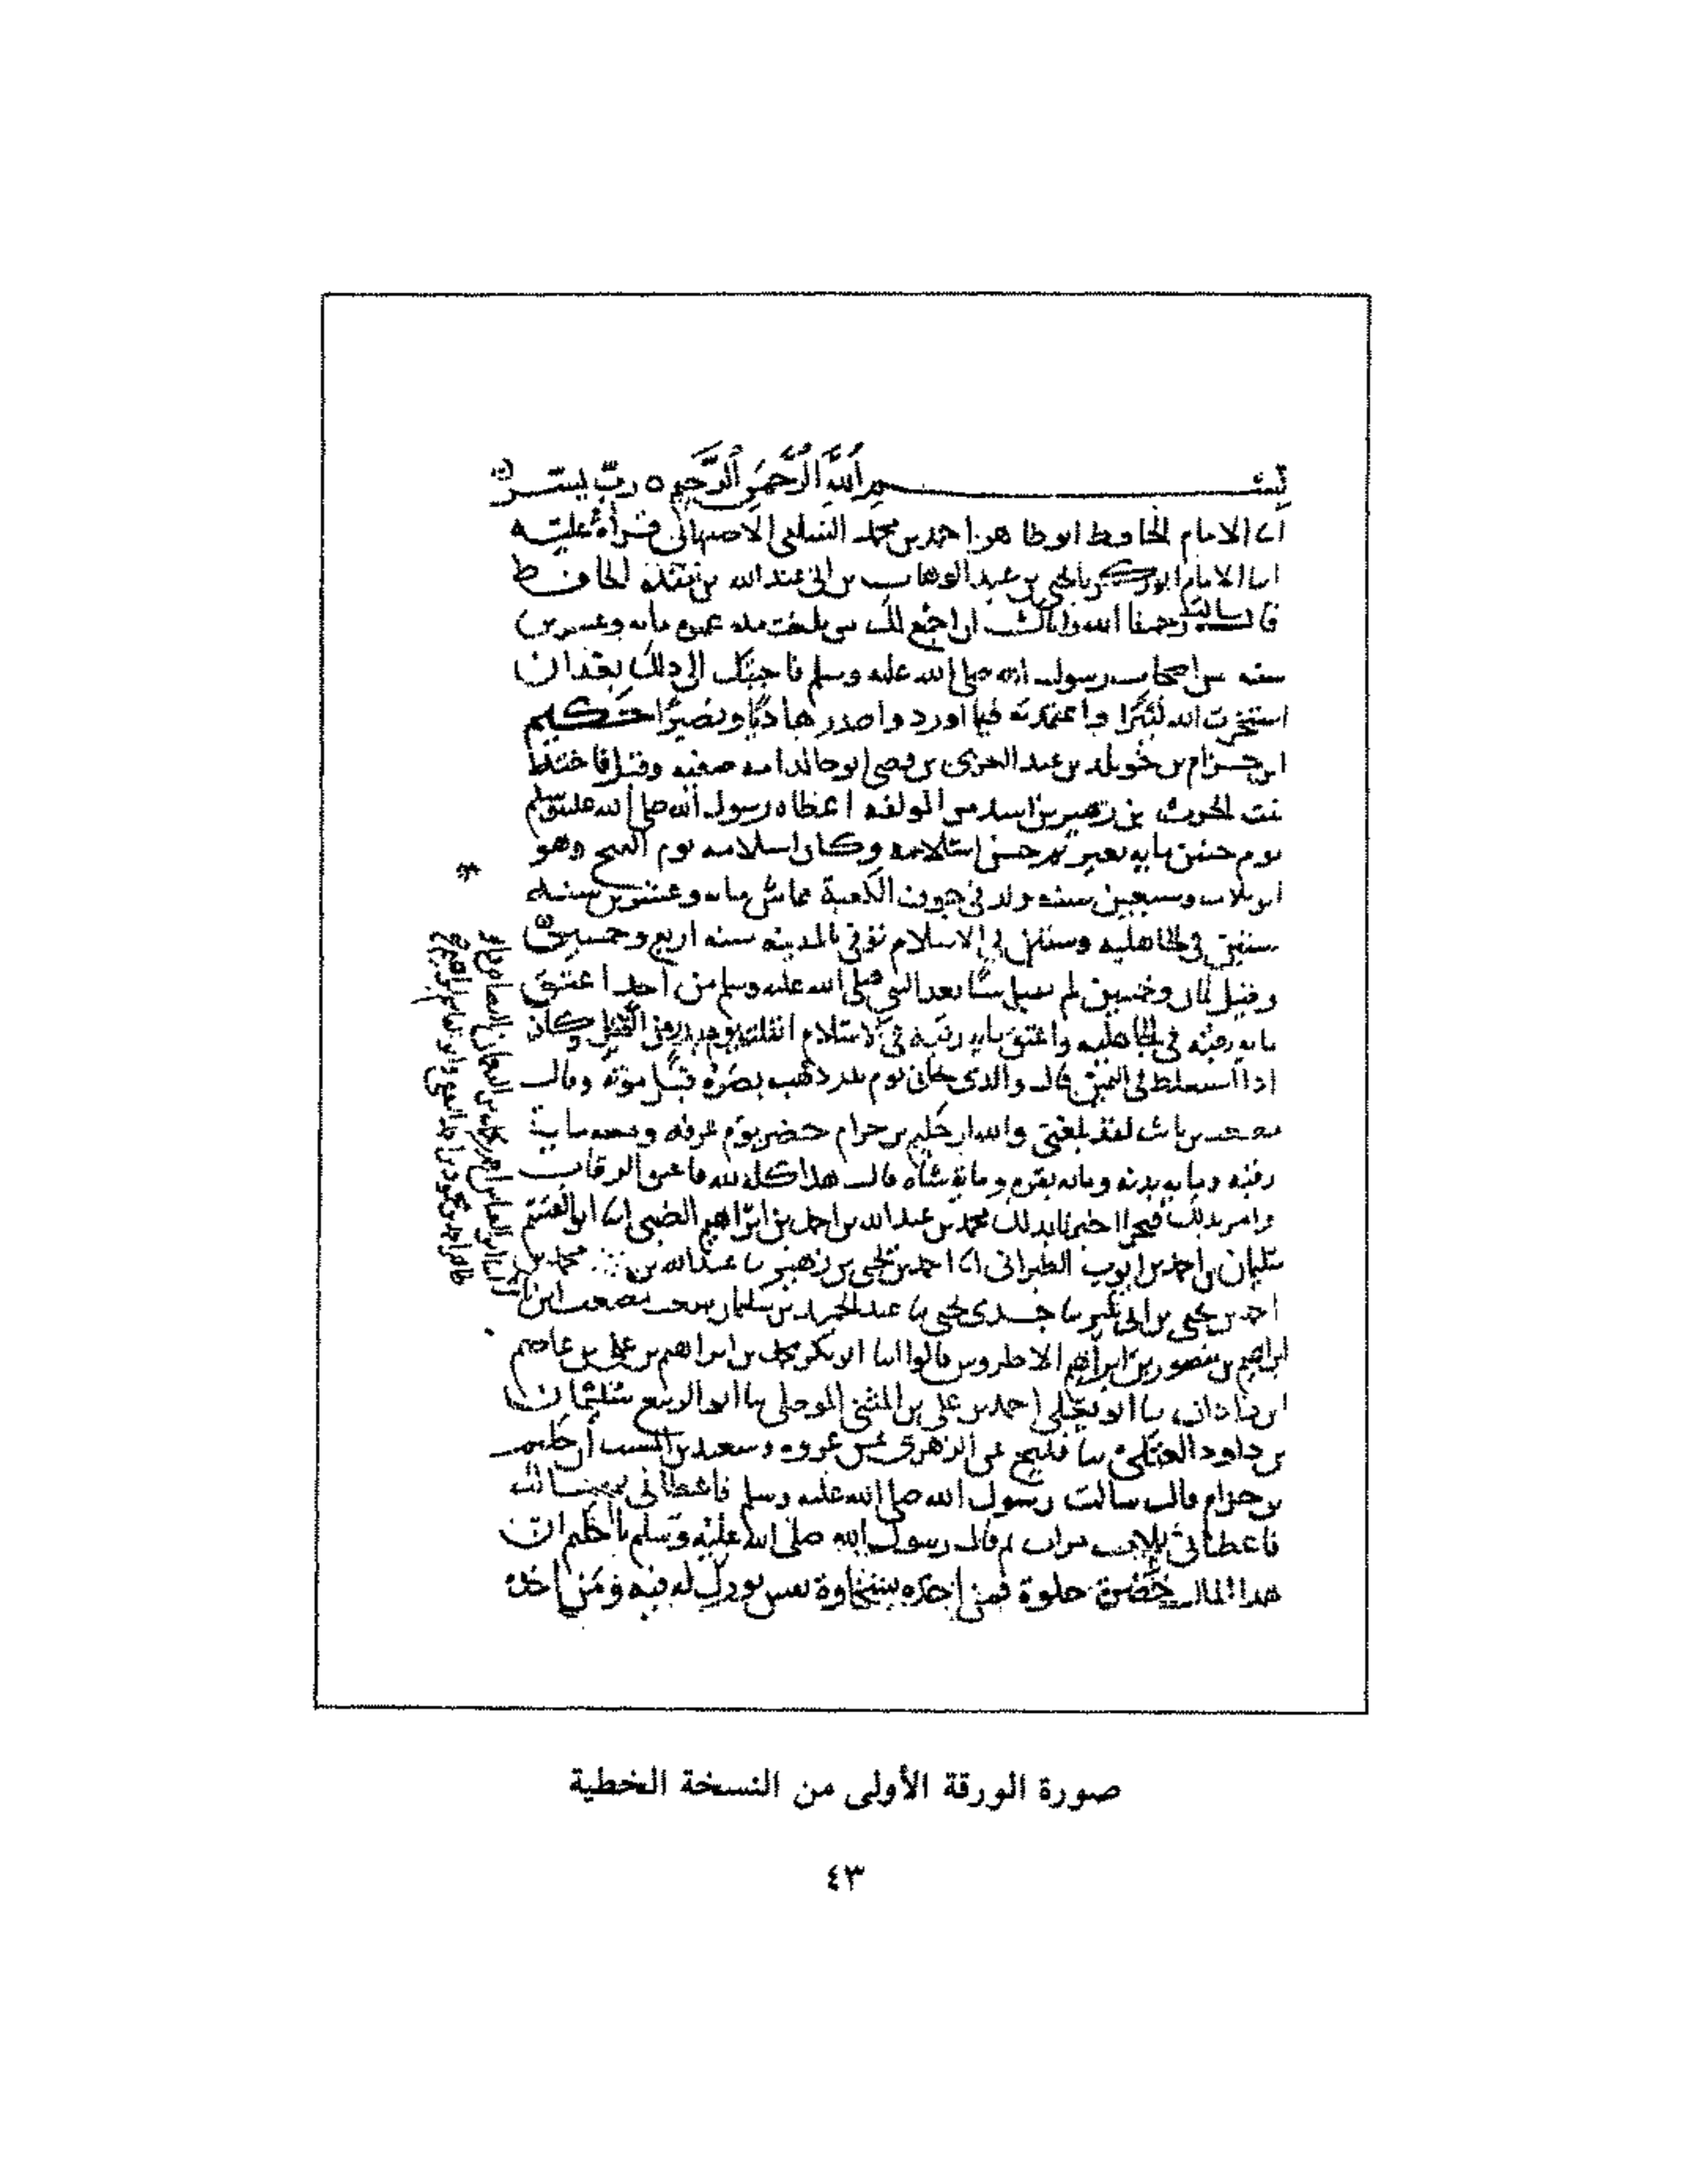 بسم الله الرحمن الرحيم ٥ رب يسر
انا الامام الحافظ ابو طاهر احمد بن محمد السلفى الاصبهانى قراءة عليه
انا الامام ابو زكريا يحيى بن عبد الوهاب بن ابى عبد الله بن منده الحافظ
قال سالت رحمنا الله واياك ان اجمع لك من بلغت مده عمره مايه وعشرين
سنه من اصحاب رسول الله صلى الله عليه وسلم فاجبتك الى ذلك بعد ان
استخرت الله واعتمدته فيما اورد واصدر هاديا ونصيرا حكيم
ابن حزام بن خويلد بن عبد العزى بن قصى ابو خالد امه صفيه وقيل فاخته
بنت الحرث بن زهير بن اسد من المولفه اعطاه رسول الله صلى الله عليه وسلم
يوم حنين مايه بعير ثم حسن اسلامه وكان اسلامه يوم الفتح وهو
ابن وسبعين سنه ولد فى جوف الكعبة عاش مايه وعشرين سنه
ستين فى الجاهليه وستين فى الاسلام توفى بالمدينه سنه اربع وخمسين
وقيل ثمان وخمسين لم يقبل شيا بعد النبى صلى الله عليه وسلم من احد اعتق
مايه رقبه فى الجاهليه واعتق مايه رقبه فى الاسلام يوم بدر من القتل وكان
اذا فى اليمين قال والذى نجانى يوم بدر ذهب بصره قبل موته وقال
مصعب بن ثابت لقد بلغنى والله ان حكيم بن حزام حضر يوم عرفه ومعه ماية
رقبه ومايه بدنه ومايه بقره وماية شاه فقال هذا كله لله فاعتق الرقاب
وامر بذلك اخبرنا بذلك محمد بن عبد الله بن احمد بن ابراهيم الضبى انا ابو القسم
سليمان بن احمد بن ايوب الطبرانى انا احمد بن يحيى بن زهير نا عبد الله بن محمد بن
احمد بن يحيى بن ابى بكير نا جدى يحيى نا عبد الحميد بن سليمان سمعت مصعب ابن ثابت
ابراهيم بن منصور بن ابراهيم قالوا انا ابو بكر محمد بن ابراهيم بن على بن عاصم
ابن زاذان نا ابو يعلى احمد بن على بن المثنى الموصلى نا ابو الربيع سليمان
بن داود العتكى نا فليح عن الزهرى عن عروه وسعيد بن المسيب ان حكيم
بن حزام قال سالت رسول الله صلى الله عليه وسلم فاعطانى ثم سالت
فاعطانى ثلاث مرات ثم قال رسول الله صلى الله عليه وسلم يا حكيم ان
هذا المال خضرة حلوة فمن اخذه بسخاوة نفس بورك له فيه ومن اخذه
صورة الورقة الأولى من النسخة الخطية
٤٣